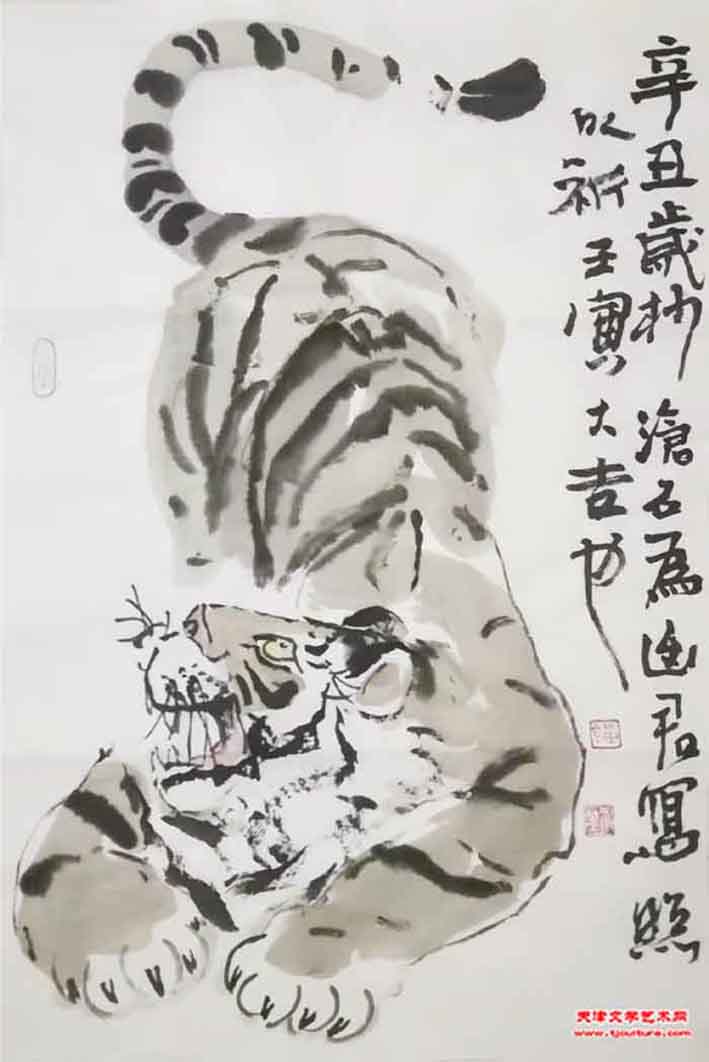 辛丑歲杪滄石為山君寫照
以祈壬寅大吉也
天津文学艺术网
www.tjculture.com